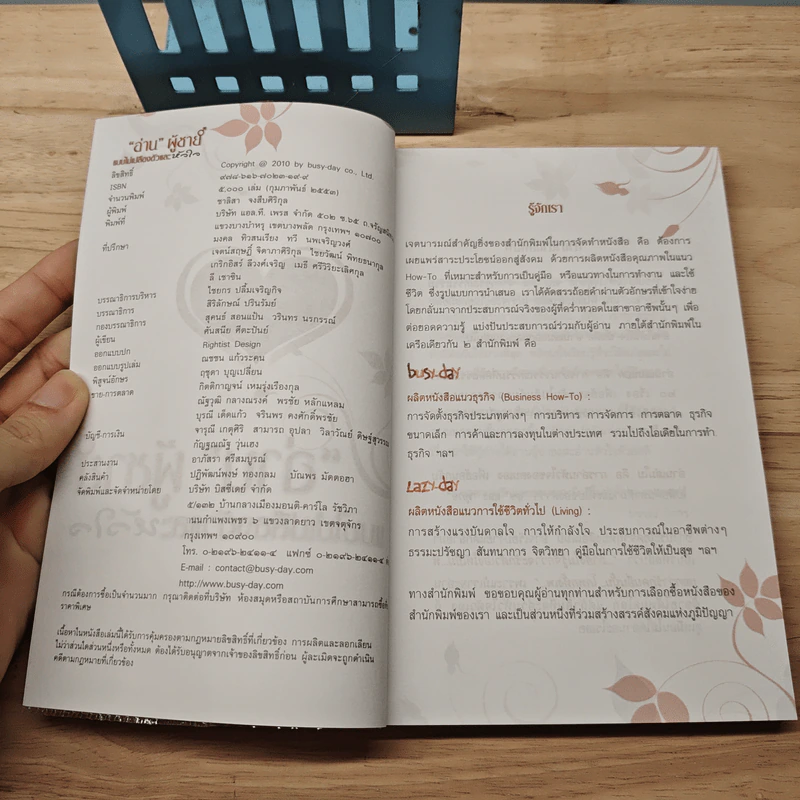 "อ่าน" ผู้ชาย
แบบไม่เปลืองตัวและหัวใจ
ลิขสิทธิ์ Copyright @ 2010 by busy-day co., Ltd.
ISBN ๙๗๘-๖๑๖-๗๐๒๓-๑๙-๙
จำนวนพิมพ์ ๕,๐๐๐ เล่ม (กุมภาพันธ์ ๒๕๕๓)
ผู้พิมพ์ ชาลิสา จงสืบศิริกุล
พิมพ์ที่ บริษัท แอล.ที. เพรส จำกัด ๕๐๒ ซ.๖๕ ถ.จรัญสนิทวงศ์
แขวงบางบำหรุ เขตบางพลัด กรุงเทพฯ ๑๐๗๐๐
ที่ปรึกษา มงคล ทิวสนเรียง ทวี นพเจริญวงศ์
เจตน์สฤษฎิ์ จิตาภาศิริกุล ไชยวัฒน์ พิทยธนากุล
เกริกอิสร์ ลีวงค์เจริญ เมธี ศรีวิริยะเลิศกุล
ลี เชาซิน
บรรณาธิการบริหาร ไชยกร ปลื้มเจริญกิจ
บรรณาธิการ สิริลักษณ์ ปรินรัมย์
กองบรรณาธิการ สุคนธ์ สอนแป้น วรินทร นรกรรณ์
ผู้เขียน คันสนีย ศีตะปันย์
ออกแบบปก Rightist Design
ออกแบบรูปเล่ม ณชชน แก้วระคน
พิสูจน์อักษร ฤชุตา บุญเปลี่ยน
ขาย-การตลาด กิตติกาญจน์ เหมรุ่งเรืองกุล
ณัฐวุฒิ กลางณรงค์ พรชัย หลักแหลม
บูรณี เด็ดแก้ว จรินพร คงศักดิ์พรชัย
บัญชี-การเงิน จารุณี เกตุศิริ สามารถ อุปลา วิลาวัณย์ ดิษฐ์สุวรรณ
กัญฐณณัฐ วุ่นเฮง
ประสานงาน อาภัสรา ศรีสมบูรณ์
คลังสินค้า ปฏิพัฒน์พงษ์ ทองกลม บัณพร มัดตอฮา
จัดพิมพ์และจัดจำหน่ายโดย บริษัท บิสซี่เดย์ จำกัด
๕/๑๓๒ บ้านกลางเมืองมอนติ-คาร์โล รัชวิภา
ถนนกำแพงเพชร ๖ แขวงลาดยาว เขตจตุจักร
กรุงเทพฯ ๑๐๙๐๐
โทร. ๐-๒๑๙๖-๒๔๑๑-๔ แฟกซ์ ๐-๒๑๙๖-๒๔๑๑-๔
E-mail : contact@busy-day.com
http://www.busy-day.com
กรณีต้องการซื้อเป็นจำนวนมาก กรุณาติดต่อที่บริษัท ห้องสมุดหรือสถาบันการศึกษาสามารถซื้อได้
ราคาพิเศษ
เนื้อหาในหนังสือเล่มนี้ได้รับการคุ้มครองตามกฎหมายลิขสิทธิ์ที่เกี่ยวข้อง การผลิตและลอกเลียน
ไม่ว่าส่วนใดส่วนหนึ่งหรือทั้งหมด ต้องได้รับอนุญาตจากเจ้าของลิขสิทธิ์ก่อน ผู้ละเมิดจะถูกดำเนิน
คดีตามกฎหมายที่เกี่ยวข้อง
รู้จักเรา
เจตนารมณ์สำคัญยิ่งของสำนักพิมพ์ในการจัดทำหนังสือ คือ ต้องการ
เผยแพร่สาระประโยชน์ออกสู่สังคม ด้วยการผลิตหนังสือคุณภาพในแนว
How-To ที่เหมาะสำหรับการเป็นคู่มือ หรือแนวทางในการทำงาน และใช้
ชีวิต ซึ่งรูปแบบการนำเสนอ เราได้คัดสรรถ้อยคำผ่านตัวอักษรที่เข้าใจง่าย
โดยกลั่นมาจากประสบการณ์จริงของผู้ที่คร่ำหวอดในสาขาอาชีพนั้นๆ เพื่อ
ต่อยอดความรู้ แบ่งปันประสบการณ์ร่วมกับผู้อ่าน ภายใต้สำนักพิมพ์ใน
เครือเดียวกัน ๒ สำนักพิมพ์ คือ
busy-day
ผลิตหนังสือแนวธุรกิจ (Business How-To) :
การจัดตั้งธุรกิจประเภทต่างๆ การบริหาร การจัดการ การตลาด ธุรกิจ
ขนาดเล็ก การค้าและการลงทุนในต่างประเทศ รวมไปถึงไอเดียในการทำ
ธุรกิจ ฯลฯ
Lazy-day
ผลิตหนังสือแนวการใช้ชีวิตทั่วไป (Living) :
การสร้างแรงบันดาลใจ การให้กำลังใจ ประสบการณ์ในอาชีพต่างๆ
ธรรมะปรัชญา สันทนาการ จิตวิทยา คู่มือในการใช้ชีวิตให้เป็นสุข ฯลฯ
ทางสำนักพิมพ์ ขอขอบคุณผู้อ่านทุกท่านสำหรับการเลือกซื้อหนังสือของ
สำนักพิมพ์ของเรา และเป็นส่วนหนึ่งที่ร่วมสร้างสรรค์สังคมแห่งภูมิปัญญา